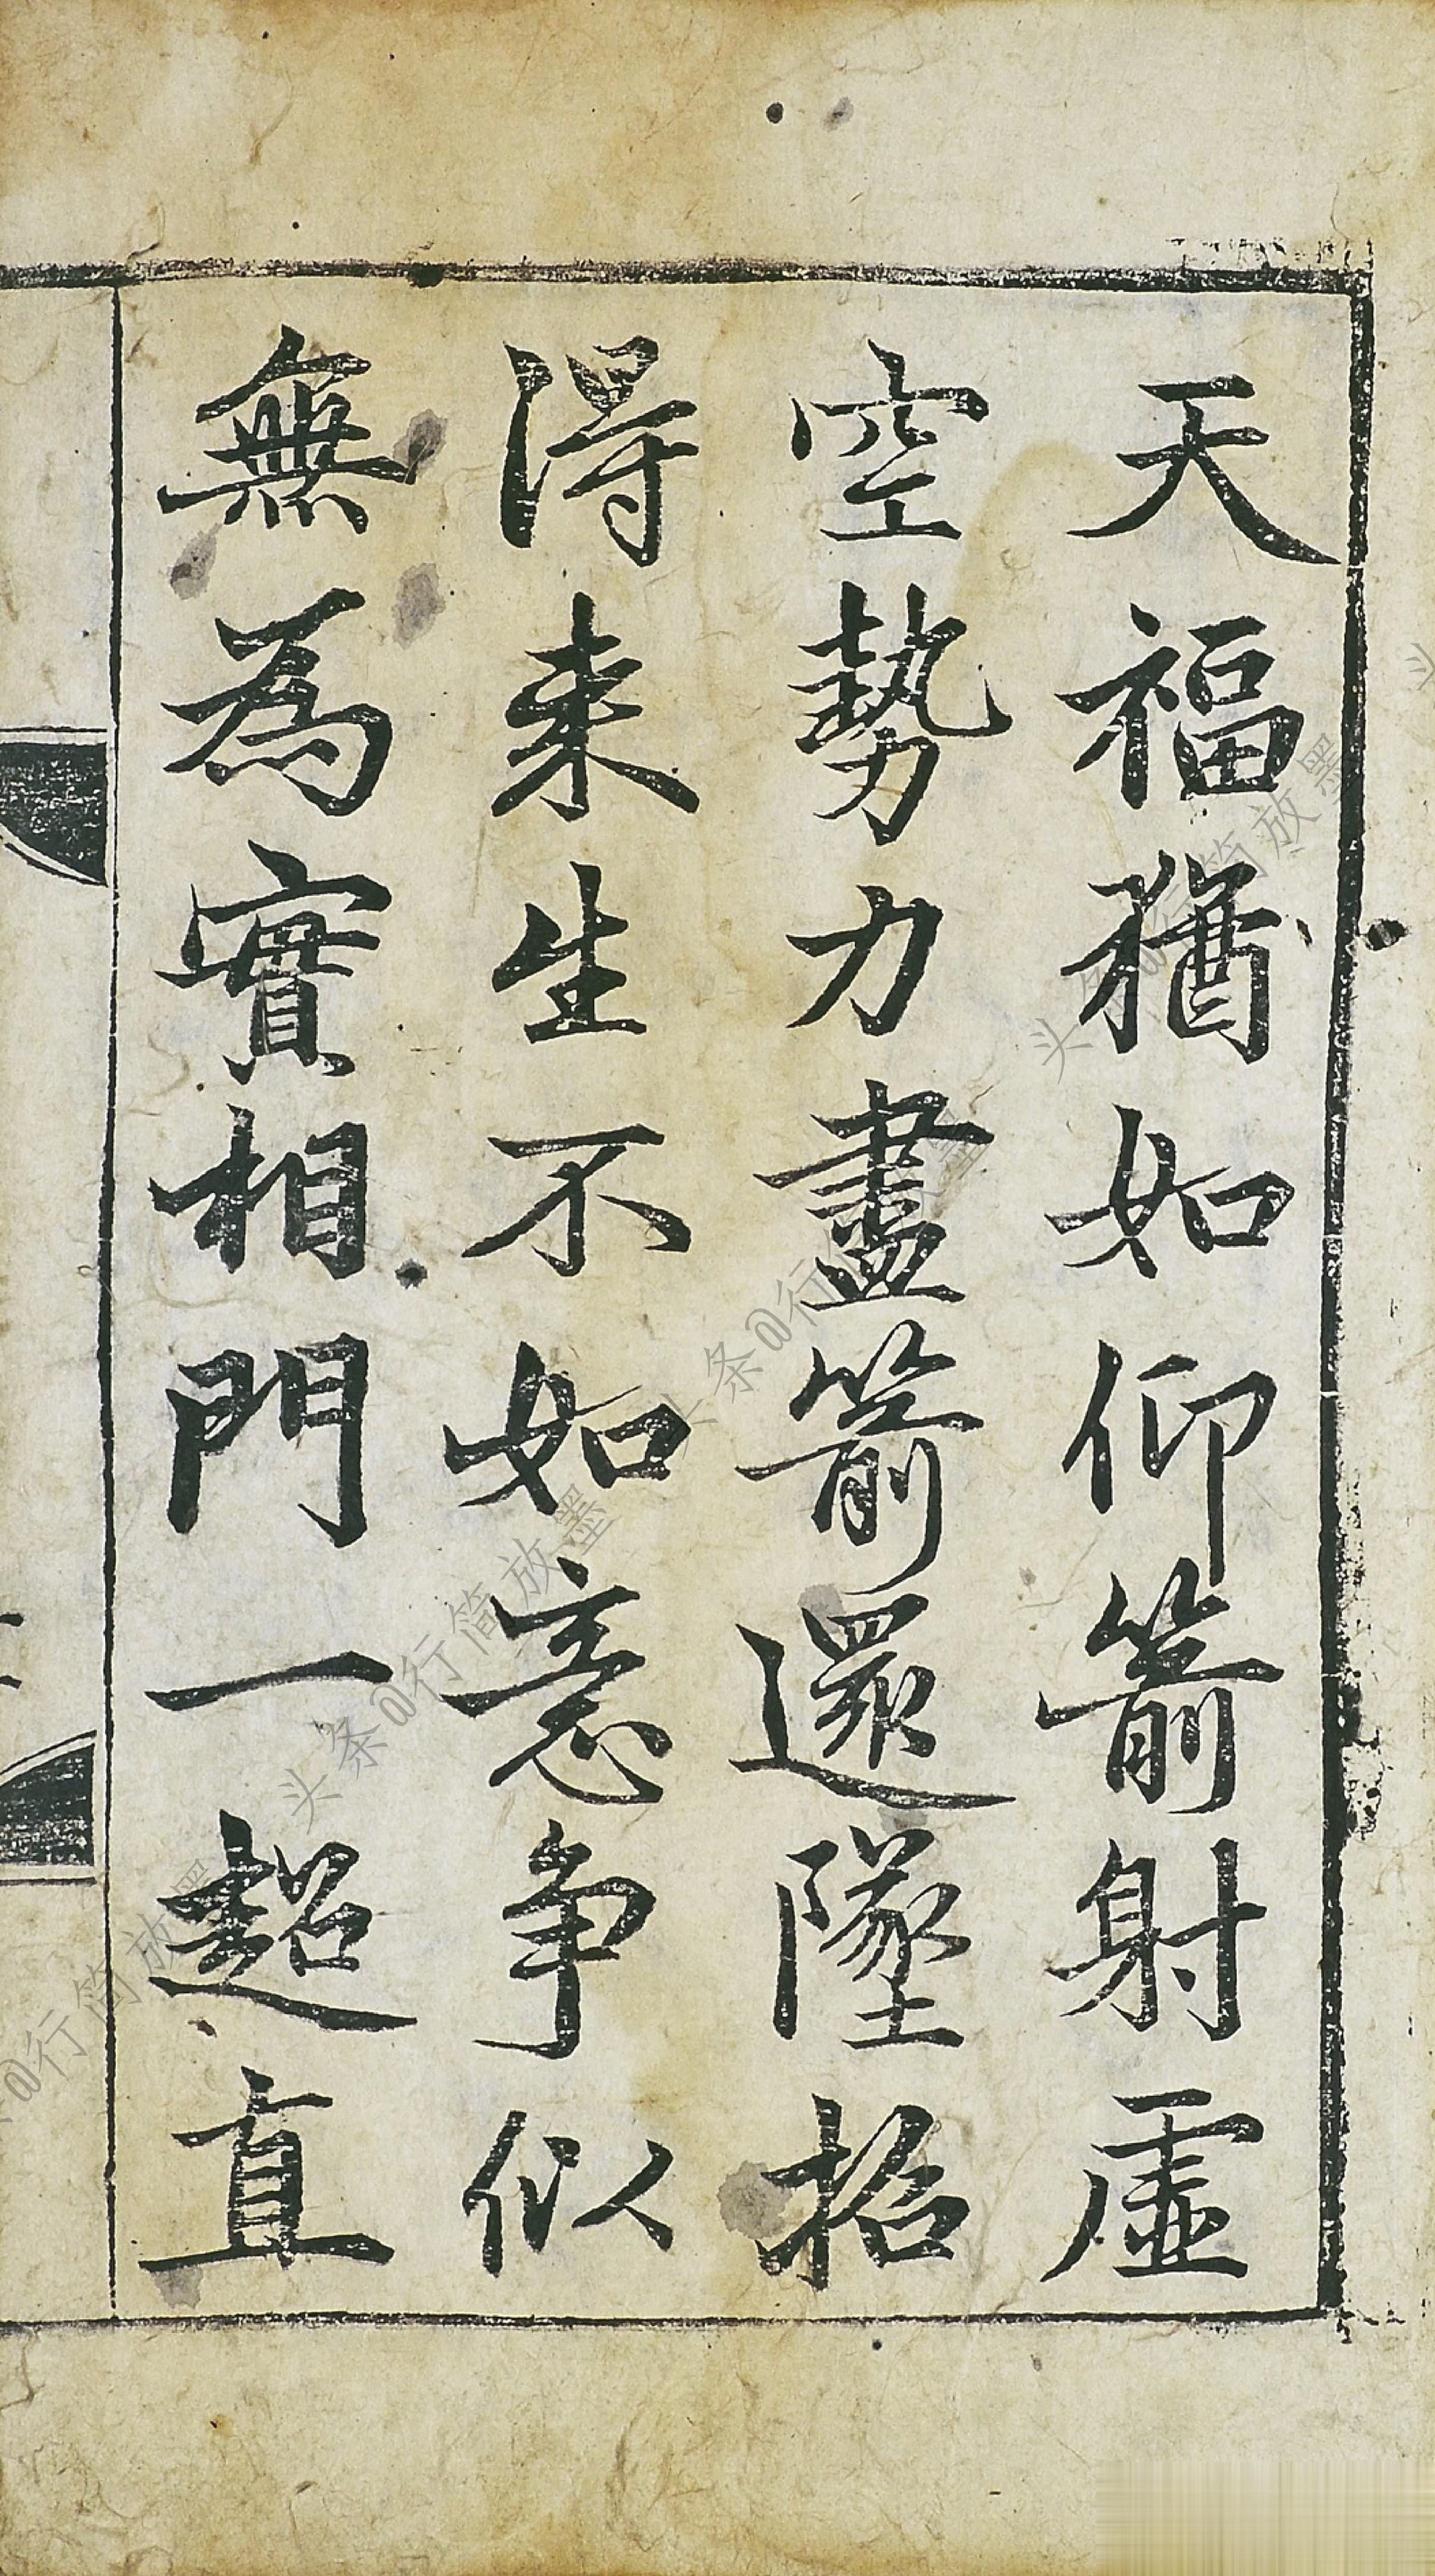 天福猶如仰箭射虛
空勢力盡箭還墜招
得来生不如意争似
無為實相門一超直
头条@行简放墨
头条@行简放墨
头条@行简放墨
@行简放墨